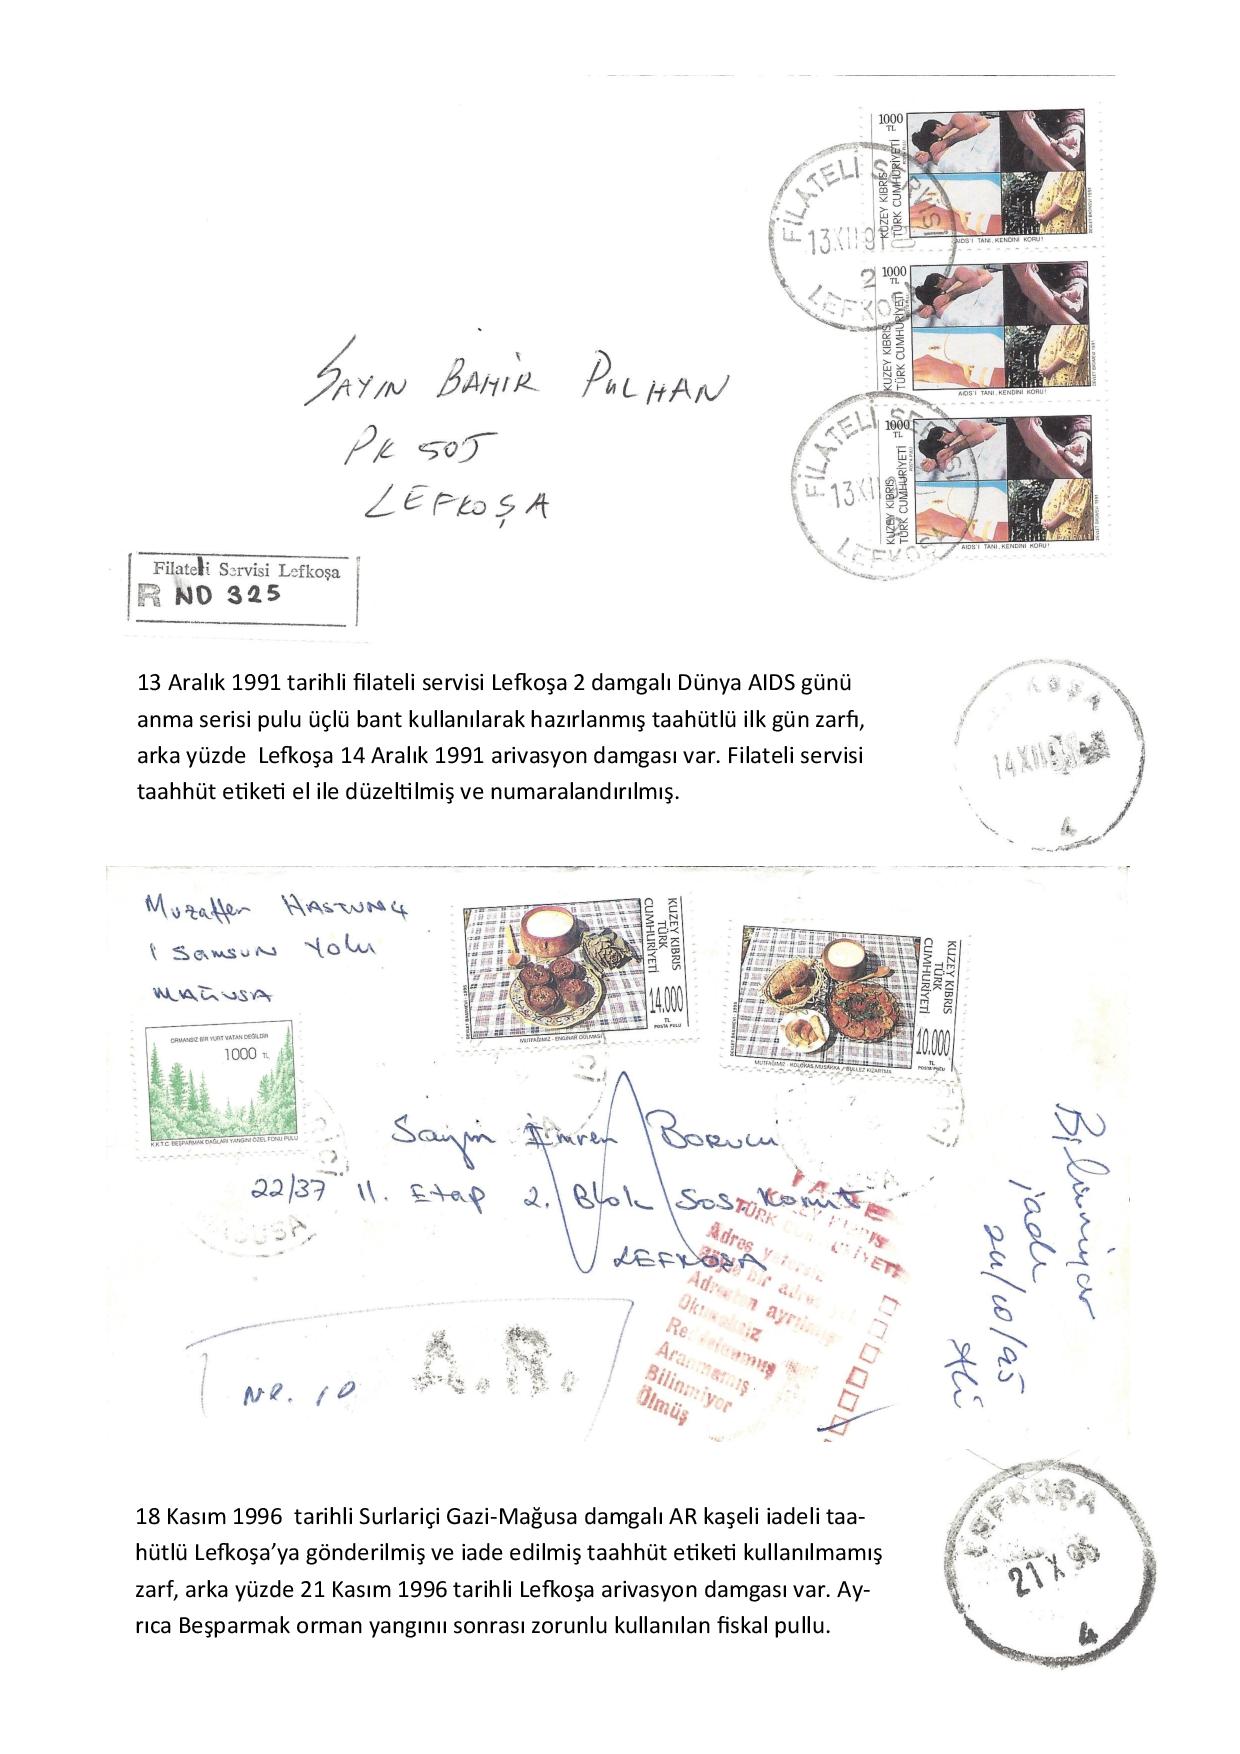 1000
TL
KUZEY KIBRIS
TÜRK CUMHURİYETİ
AIDS'İ TANI, KENDİNİ KORU!
FİLATELİ SERVİS
13XII91
2
LEFKOŞA
1000
TL
KUZEY KIBRIS
TÜRK CUMHURİYETİ
AIDS'İ TANI, KENDİNİ KORU!
1000
TL
KUZEY KIBRIS
TÜRK CUMHURİYETİ
AIDS'İ TANI, KENDİNİ KORU!
FİLATELİ SERVİSİ
13XII
LEFKOŞA
SAYIN BAHİR PULHAN
PK 505
LEFKOŞA
Filateli Servisi Lefkoşa
R NO 325
13 Aralık 1991 tarihli filateli servisi Lefkoşa 2 damgalı Dünya AIDS günü
anma serisi pulu üçlü bant kullanılarak hazırlanmış taahütlü ilk gün zarfı,
arka yüzde Lefkoşa 14 Aralık 1991 arivasyon damgası var. Filateli servisi
taahhüt etiketi el ile düzeltilmiş ve numaralandırılmış.
KOŞA
14XII
4
Muzaffer HASTUNÇ
1 Samsun Yolu
MAĞUSA
ORMANSIZ BİR YURT VATAN DEĞİLDİR
1000 TL
K.K.T.C. BEŞPARMAK DAĞLARI YANGINI ÖZEL FONU PULU
KUZEY KIBRIS
TÜRK
CUMHURİYETİ
14.000
TL
POSTA PULU
MUTFAĞIMIZ - ENGİNAR DOLMASI
KUZEY KIBRIS
TÜRK
CUMHURİYETİ
10.000
TL
POSTA PULU
MUTFAĞIMIZ - KOLOKAS MUSAKKA / BULLEZ KIZARTMA
Sayın İmren BORUCU
22/37 II. Etap 2. Blok Sos. Konut
LEFKOŞA
İADE
Adres yetersiz
Böyle bir adres yok
Adresten ayrılmış
Okunaksız
Reddolunmuş
Aranmamış
Bilinmiyor
Ölmüş
Bilinmiyor
iade
24/10/95
Ali
NR. 10
A.R.
18 Kasım 1996 tarihli Surlariçi Gazi-Mağusa damgalı AR kaşeli iadeli taa-
hütlü Lefkoşa’ya gönderilmiş ve iade edilmiş taahhüt etiketi kullanılmamış
zarf, arka yüzde 21 Kasım 1996 tarihli Lefkoşa arivasyon damgası var. Ay-
rıca Beşparmak orman yangınıı sonrası zorunlu kullanılan fiskal pullu.
LEFKOŞA
21 X 95
4